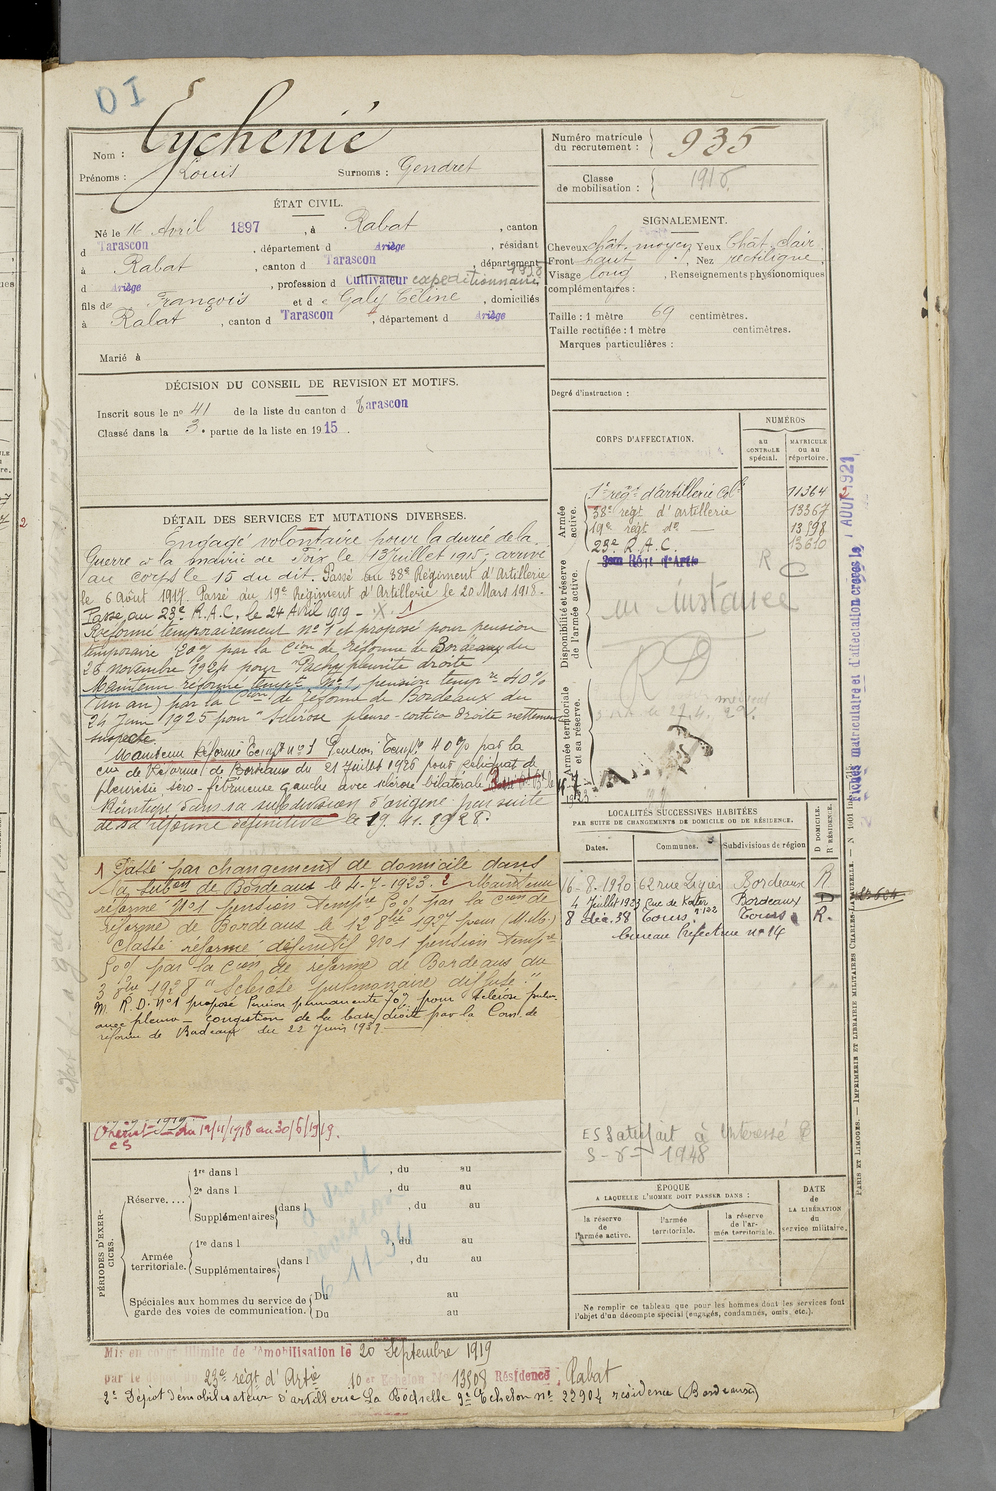 D I
Nom : Eychenié
Prénoms : Louis Surnoms : Gendret
Numéro matricule du recrutement : 935
Classe de mobilisation : 1915
ÉTAT CIVIL.
Né le 16 Avril 1897, à Rabat, canton
d Tarascon, département d Ariège, résidant
à Rabat, canton d Tarascon, département
d Ariège, profession d Cultivateur expéditionnaire
fils de François et de Galy Céline, domiciliés
à Rabat, canton d Tarascon, département d Ariège
Marié à
SIGNALEMENT.
Cheveux chât. moyen Yeux Chât. clair,
Front haut, Nez rectiligne,
Visage long, Renseignements physionomiques
complémentaires :
Taille : 1 mètre 69 centimètres.
Taille rectifiée : 1 mètre centimètres.
Marques particulières :
DÉCISION DU CONSEIL DE REVISION ET MOTIFS.
Inscrit sous le n° 41 de la liste du canton d Tarascon
Classé dans la 3e partie de la liste en 1915.
Degré d'instruction :
CORPS D'AFFECTATION.
NUMÉROS
au contrôle spécial.
matricule ou au répertoire.
Armée active.
1er régt d'artillerie Cole 11364
38e régt d'artillerie 13367
19e régt do 13598
23e R.A.C. 13610
Disponibilité et réserve de l'armée active.
R C
en instance
RD
Armée territoriale et sa réserve.
DÉTAIL DES SERVICES ET MUTATIONS DIVERSES.
Engagé volontaire pour la durée de la
Guerre à la mairie de Foix le 13 Juillet 1915, arrivé
au corps le 15 du dit. Passé au 38e Régiment d'Artillerie
le 6 Août 1917. Passé au 19e Régiment d'Artillerie le 20 Mars 1918.
Passé au 23e R.A.C. le 24 Avril 1919 - X. 1
Réformé temporairement N° 1 et proposé pour pension
temporaire 20% par la Cion de réforme de Bordeaux du
26 novembre 1924 pour "Pachypleurite droite
Maintenu réformé tempre N° 1, pension tempre 40%
(un an) par la Cion de réforme de Bordeaux du
24 Juin 1925 pour "Sclérose pleuro-cortico droite nettement
suspecte
Maintenu Réformé Tempre n° 1 Pension Tempre 40% par la
Cion de Réforme de Bordeaux du 21 Juillet 1926 pour reliquat de
pleurésie séro-fibrineuse gauche avec sclérose bilatérale
Réintégré dans sa subdivision d'origine par suite
de sa réforme définitive le 19.11.1928.
1 Passé par changement de domicile dans
la subon de Bordeaux le 4-7-1923. 2 Maintenu
réformé N° 1 pension tempre 50% par la Cion de
réforme de Bordeaux le 12 8bre 1927 pour (M. Mbr)
Classé réformé définitif N° 1 pension tempre
50% par la Cion de réforme de Bordeaux du
3 8bre 1928 "Sclérose pulmonaire diffuse".
M. R.D. N° 1 proposé Pension permanente 70% pour sclérose pulm.
avec pleuro-congestion de la base droite par la Com. de
réforme de Bordeaux du 22 Juin 1932
du 12/11/1918 au 30/6/1919.
CS
LOCALITÉS SUCCESSIVES HABITÉES
PAR SUITE DE CHANGEMENTS DE DOMICILE OU DE RÉSIDENCE.
Dates. Communes. Subdivisions de région
D DOMICILE. R RÉSIDENCE.
16-8-1920 62 rue Ligier Bordeaux R
4 Juillet 1923 Rue de Kater n° 122 Bordeaux D
8 déc. 38 Tours, Tours R.
bureau Préfecture n° 14
E S Satisfait à Intéressé
5-6-1948
PÉRIODES D'EXERCICES.
Réserve....
1re dans l , du au
2e dans l , du au
Supplémentaires dans l , du au
Armée territoriale.
1re dans l , du au
Supplémentaires dans l , du au
Spéciales aux hommes du service de garde des voies de communication.
Du au
Du au
ÉPOQUE
A LAQUELLE L'HOMME DOIT PASSER DANS :
la réserve de l'armée active.
l'armée territoriale.
la réserve de l'armée territoriale.
DATE de LA LIBÉRATION du service militaire.
Ne remplir ce tableau que pour les hommes dont les services font
l'objet d'un décompte spécial (engagés, condamnés, omis, etc.).
Mis en congé illimité de démobilisation le 20 Septembre 1919
par le 23e régt d'Artie 10e Echelon N° 13508 Résidence Rabat
2e Dépôt démobilisateur d'artillerie La Rochelle 9e Echelon n° 22904 résidence (Bordeaux)
PARIS ET LIMOGES. — IMPRIMERIE ET LIBRAIRIE MILITAIRES CHARLES-LAVAUZELLE. — N° 1001
Fiches matriculaire et d'affectation créées le 1 AOUT 1921